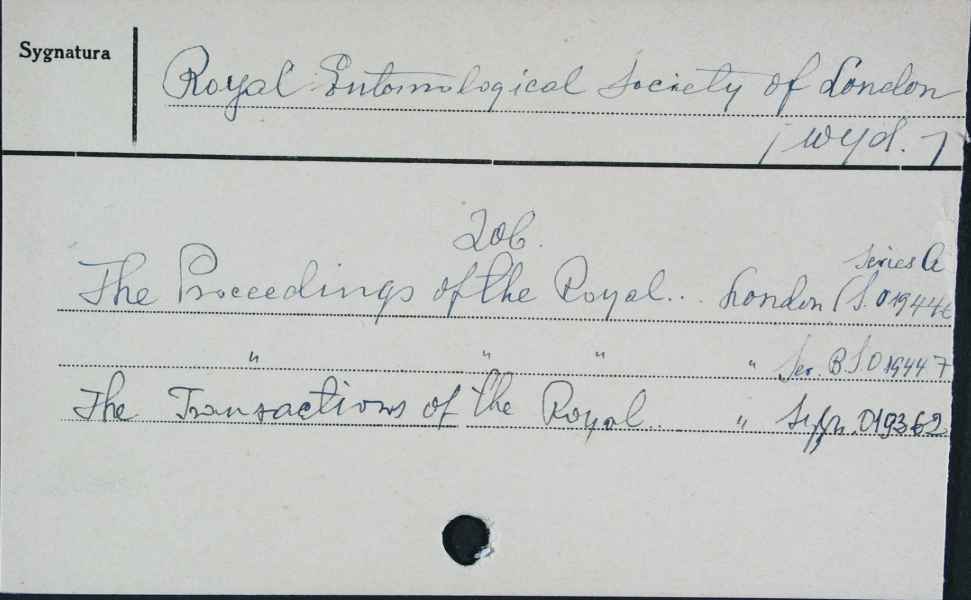 Sygnatura
Royal Entomological Society of London
/ wyd. /
Zob.
Series A
The Proceedings of the Royal... London (S. 019446
" " " " Ser. B S.O 19447
The Transactions of the Royal.. " Sygn. 019362